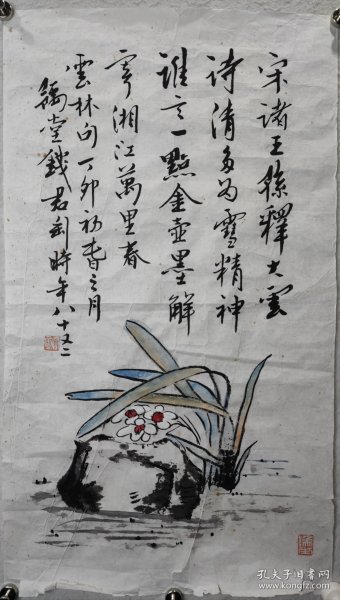 宋諸王孫釋大雲
詩清多为雪精神
誰言一點金壺墨解
寄湘江萬里春
雲林句丁卯初春之月
堂鐵君時年八十又二
孔夫子旧书网
https://www.kongfz.com/